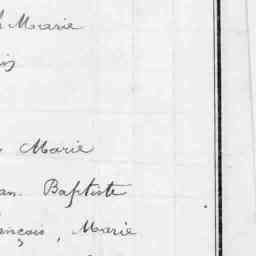 h Marie
Marie
an Baptiste
ançois, Marie